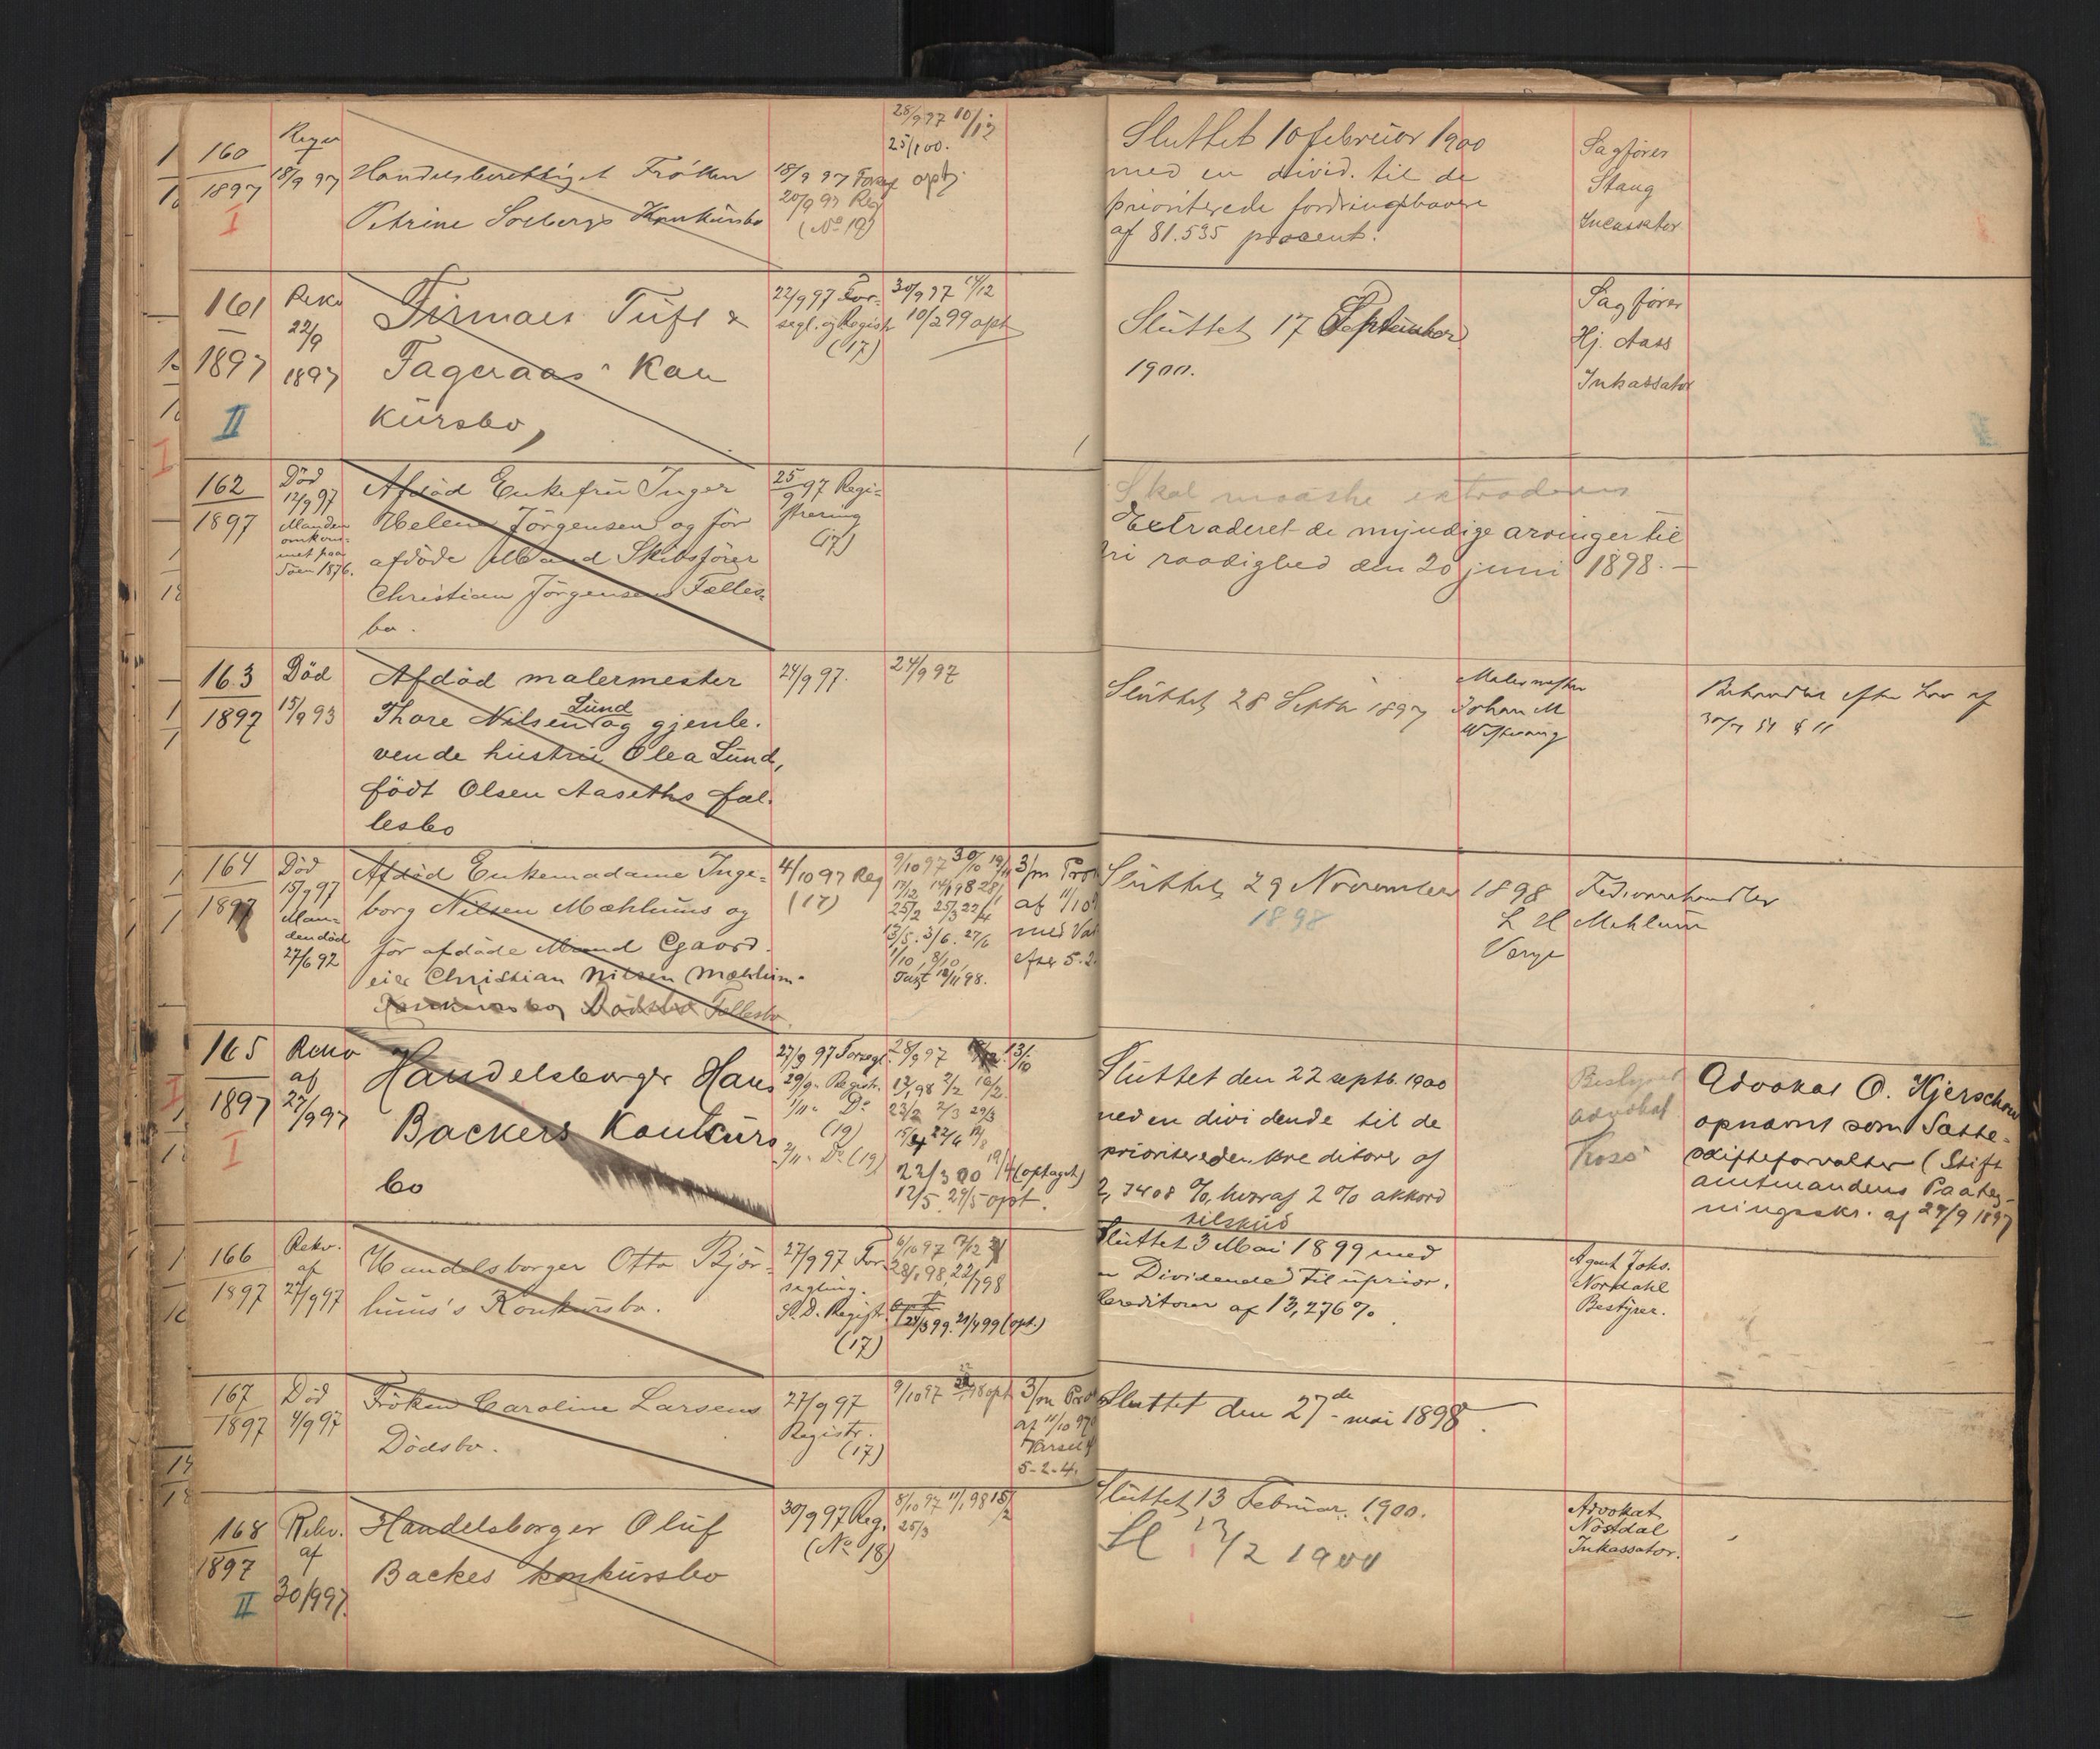 160
1897
I
18/9 97
Handelsberettiget Fröken
Petrine Solbergs Konkursbo
18/9 97 Forsegl
20/9 97 Reg
(No 19)
28/9 97 10/12
25/1 00.
opt
Sluttet 10 februar 1900
med en divid. til de
prioriterede fordringshavere
af 81.535 procent.
Sagförer
Stang
Incassator
161
1897
II
Rekv
22/9
1897
Firmaet Tüft &
Fageraas' Kon
kursbo,
22/9 97 For-
segl. og Registr
(17)
30/9 97 17/12
10/2 99 opt
Sluttet 17 September
1900.
Sagförer
Hj. Aass
Inkassator
162
1897
Död
12/9 97
Manden
omkom-
met paa
Söen 1876.
Afdöd Enkefru Inger
Helene Jörgensen og för
afdöde Mand Skibsförer
Christian Jörgensens Fælles-
bo.
25/9 97 Regi-
strering
(17)
Skal maaske extraderes
Extraderet de myndige arvinger til
fri raadighed den 20 juni 1898. —
163
1897
Död
15/9 93
Afdöd malermester
Lund
Thore Nilsen og gjenle-
vende hustru Olea Lund,
födt Olsen Aaseths fæl-
lesbo
24/9 97.
24/9 97
Sluttet 28 Septbr 1897
Malermester
Johan M
Behandlet efter Lov af
30/7 51 § 11
164
1897
Död
15/9 97
Man-
den död
27/6 92
Afdöd Enkemadame Inge-
borg Nilsen Mæhlums og
för afdöde Mand Gaard-
eier Christian Nilsen Mæhlum-
Konkursbo Dödsbo Fellesbo.
4/10 97 Reg
(17)
9/10 97 30/10 19/11
25/2 25/3 22/4
13/5. 3/6. 27/6
1/10, 8/10,
18/11 98.
3/m Pro
af 11/10
med Var
efter 5-2
Sluttet 29 November 1898
1898
L H Mehlum
Værge
165
1897
I
Rekv
af
27/9 97
Handelsborger Hans
Backers Konkurs
bo
27/9 97 Forsegl.
29/9 " Registr.
1/11 " Do
(19)
2/11 " Do (19)
28/9 97 13/10
23/2 2/3 29/3
22/3 00 19/4 (optaget)
12/5. 29/5 opt.
Sluttet den 22 septb. 1900
med en dividende til de
prioriterede kreditorer af
2,7408 %, hvoraf 2 % akkord
tilskud
Bestyrer
advokat
Advokat O. Kjerschow
opnævnt som Sætte-
skifteforvalter (Stift
amtmandens Paateg-
ningsskr. af 29/9 1897
166
1897
Rekv.
af
27/9 97
Handelsborger Otto Björ-
huus's Konkursbo.
27/9 97 For-
segling.
S. D. Registr.
(17)
6/10 97 17/12
28/1 98, 22/7 98
21/3 99. 21/4 99 (opt.)
Sluttet 3 Mai 1899 med
en Dividende til uprior.
Creditorer af 13,276 %.
Agent Johs.
Nordahl
Bestyrer.
167
1897
Död
4/9 97
Fröken Caroline Larsens
Dödsbo.
27/9 97
Registr.
(17)
9/10 97
opt
3/m Pro
af 11/10 97
Varsel
5-2-4.
Sluttet den 27de mai 1898.
168
1897
II
Rekv.
af
30/9 97.
Handelsborger Oluf
Backes konkursbo
30/9 97 Reg.
(No 18)
8/10 97 11/1 98 15/2
25/3
Sluttet 13 Februar 1900.
Sl 13/2 1900
Advokat
Nöstdal
Inkassator.